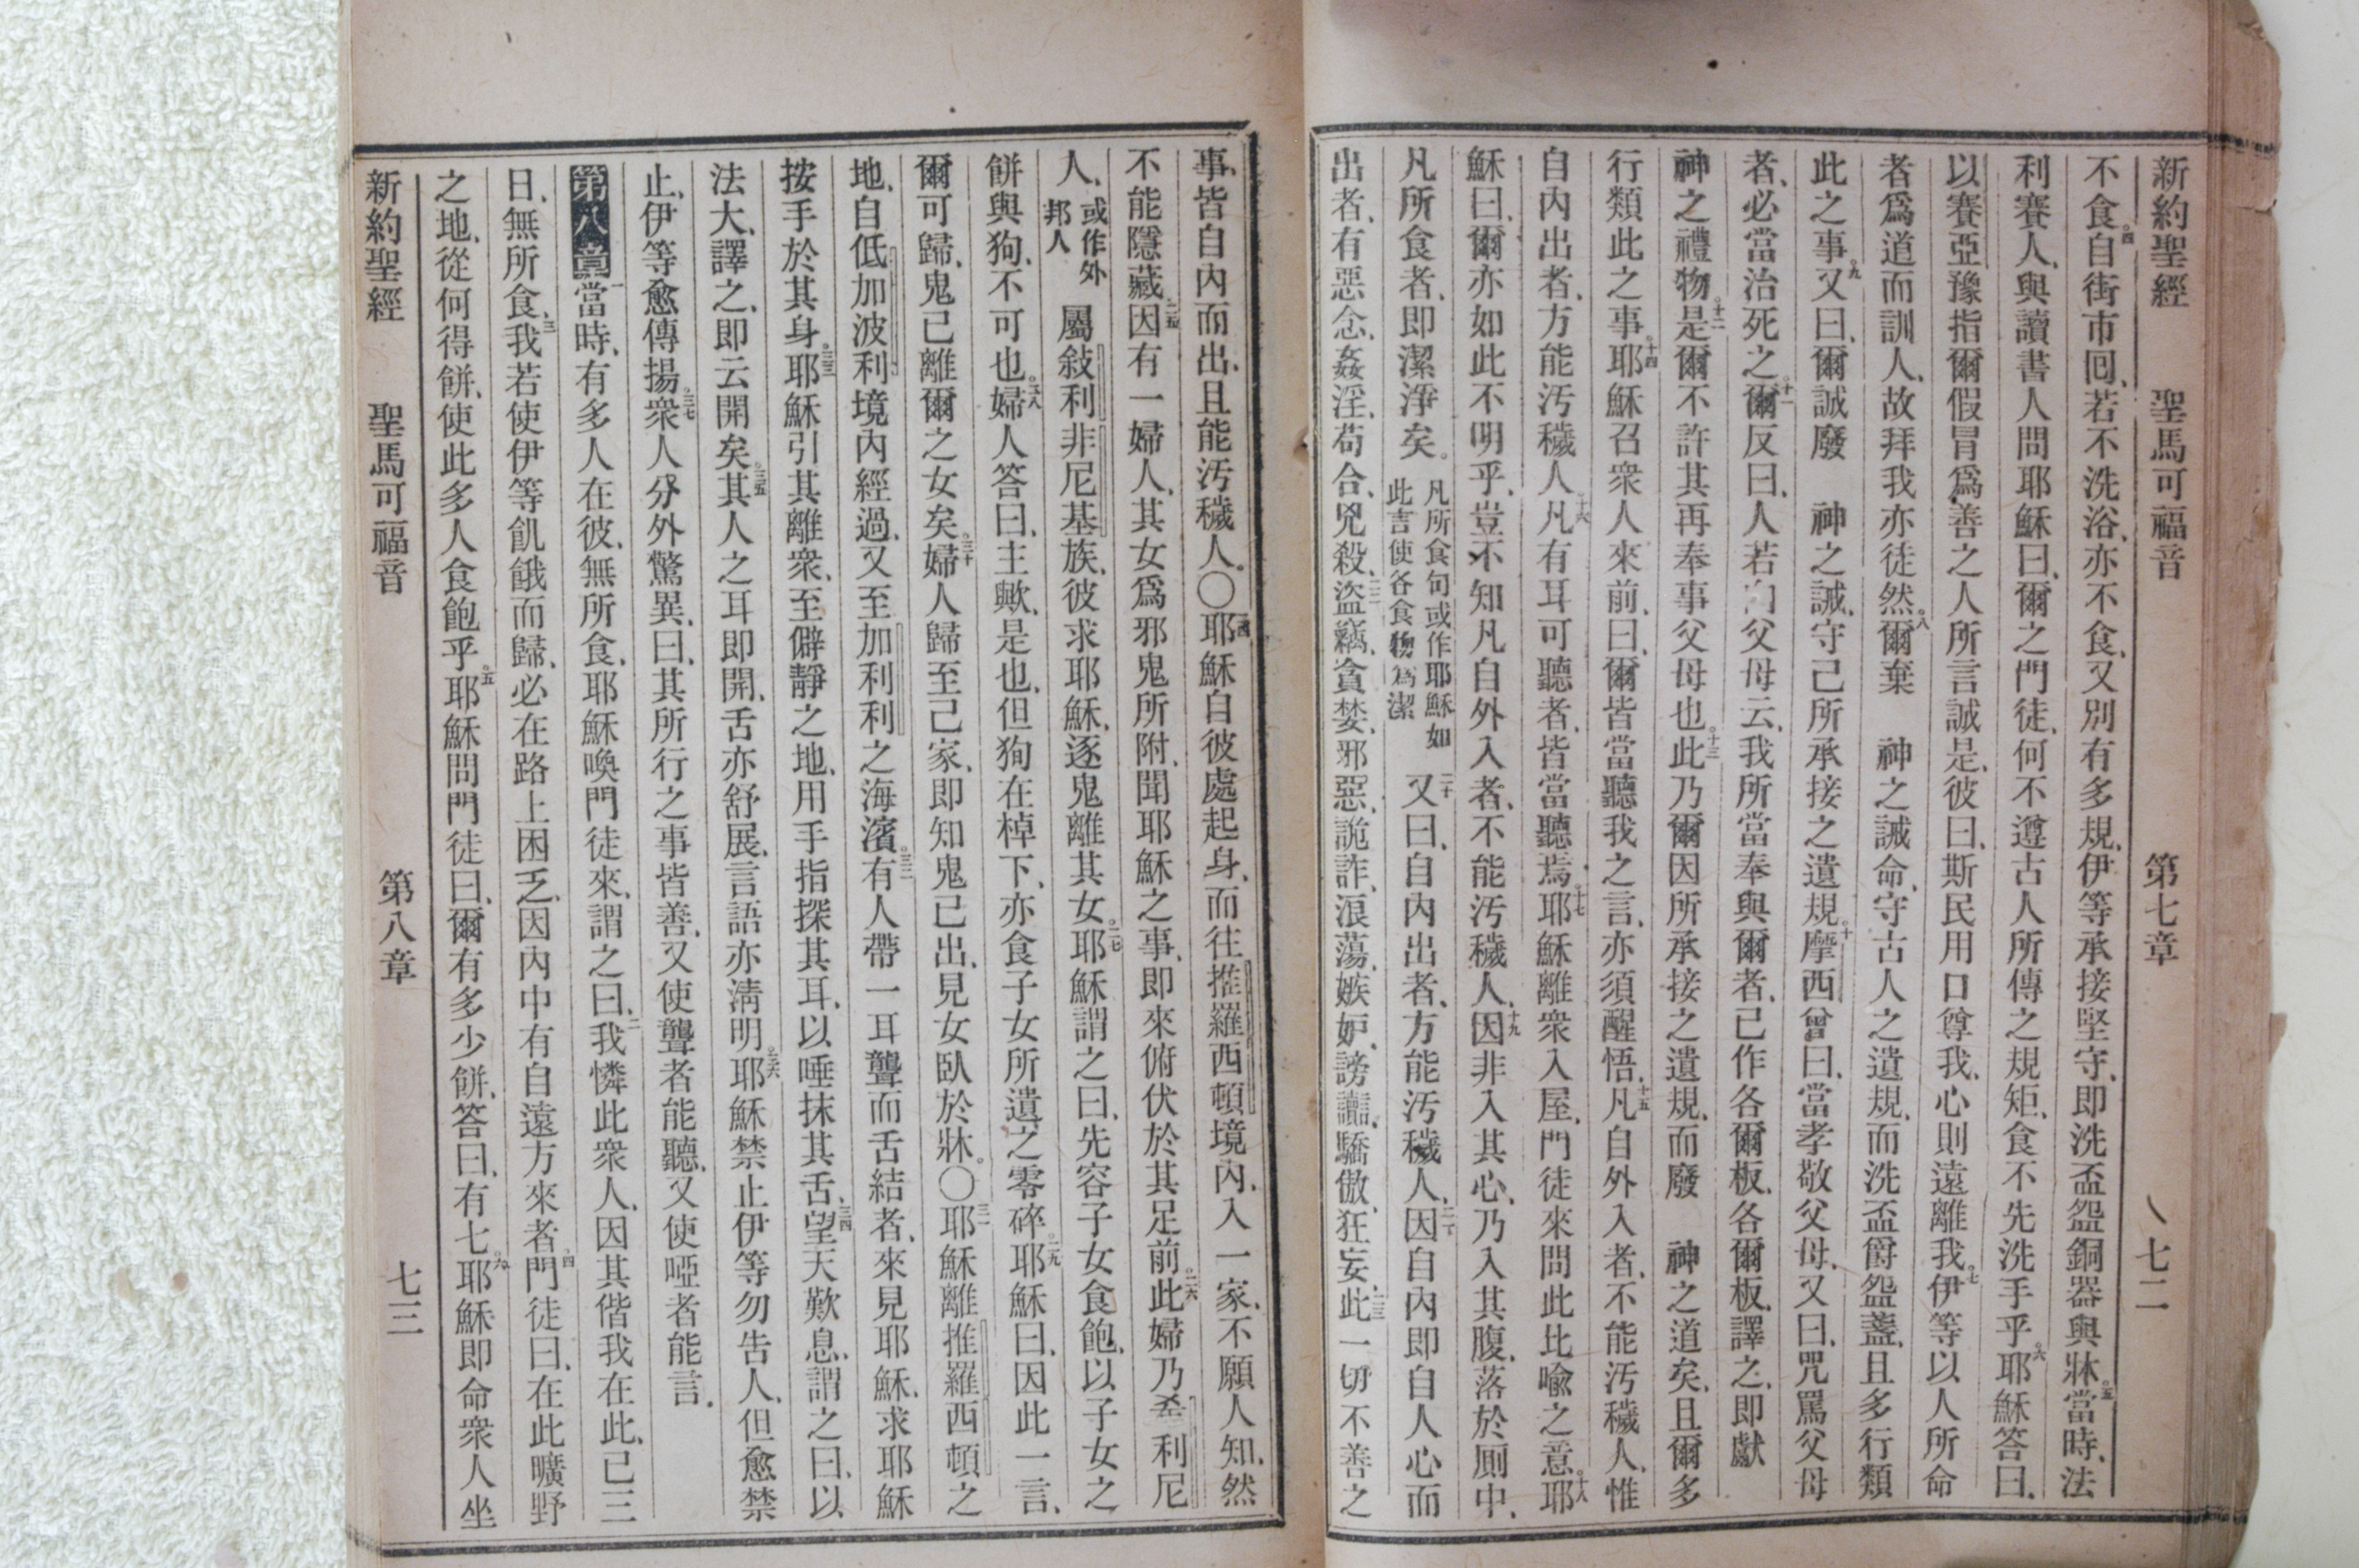 新約聖經 聖馬可福音 第七章 七二
不食四自街市回若不洗浴、亦不食、又別有多規、伊等承接堅守、即洗盃盌銅器與牀。五當時、法
利賽人、與讀書人問耶穌曰、爾之門徒、何不遵古人所傳之規矩、食不先洗手乎。六耶穌答曰、
以賽亞豫指爾假冒爲善之人所言誠是、彼曰、斯民用口尊我、心則遠離我。七伊等以人所命
者爲道而訓人、故拜我亦徒然。八爾棄 神之誡命、守古人之遺規、而洗盃爵盌盞、且多行類
此之事。九又曰、爾誠廢 神之誡、守己所承接之遺規。十摩西曾曰、當孝敬父母、又曰、咒罵父母
者、必當治死之。十一爾反曰、人若向父母云、我所當奉與爾者、己作各爾板、各爾板譯之、即獻
神之禮物。十二是爾不許其再奉事父母也。十三此乃爾因所承接之遺規、而廢 神之道矣、且爾多
行類此之事。十四耶穌召衆人來前、曰、爾皆當聽我之言、亦須醒悟、十五凡自外入者、不能汚穢人、惟
自內出者、方能汚穢人、十六凡有耳可聽者、皆當聽焉。十七耶穌離衆入屋、門徒來問此比喻之意。十八耶
穌曰、爾亦如此不明乎、豈不知凡自外入者、不能汚穢人、十九因非入其心、乃入其腹、落於厠中、
凡所食者、即潔淨矣。凡所食句或作耶穌如此言使各食物爲潔 二十又曰、自內出者、方能汚穢人、二一因自內即自人心而
出者、有惡念、姦淫、苟合、兇殺、二二盜竊、貪婪、邪惡、詭詐、浪蕩、嫉妒、謗讟、驕傲、狂妄、二三此一切不善之
事、皆自內而出、且能汚穢人。〇二四耶穌自彼處起身、而往推羅西頓境內、入一家、不願人知、然
不能隱藏。二五因有一婦人、其女爲邪鬼所附、聞耶穌之事、即來俯伏於其足前。二六此婦乃希利尼
人、或作外邦人 屬敍利非尼基族、彼求耶穌、逐鬼離其女。二七耶穌謂之曰、先容子女食飽、以子女之
餅與狗、不可也。二八婦人答曰、主歟、是也、但狥在棹下、亦食子女所遺之零碎。二九耶穌曰、因此一言、
爾可歸、鬼已離爾之女矣。三十婦人歸至己家、即知鬼已出、見女臥於牀。〇三一耶穌離推羅西頓之
地、自低加波利境內經過、又至加利利之海濱。三二有人帶一耳聾而舌結者、來見耶穌、求耶穌
按手於其身。三三耶穌引其離衆、至僻靜之地、用手指探其耳、以唾抹其舌、三四望天歎息、謂之曰、以
法大、譯之、即云開矣。三五其人之耳即開、舌亦舒展、言語亦淸明。三六耶穌禁止伊等勿告人、但愈禁
止、伊等愈傳揚。三七衆人分外驚異、曰、其所行之事皆善、又使聾者能聽、又使啞者能言。
第八章一當時、有多人在彼、無所食、耶穌喚門徒來、謂之曰、二我憐此衆人、因其偕我在此、已三
日、無所食、三我若使伊等飢餓而歸、必在路上困乏、因內中有自遠方來者。四門徒曰、在此曠野
之地、從何得餅、使此多人食飽乎。五耶穌問門徒曰、爾有多少餅、答曰、有七。六耶穌即命衆人坐
新約聖經 聖馬可福音 第八章 七三